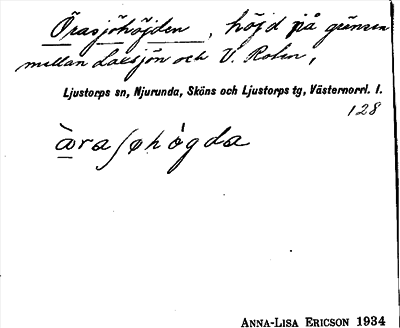 Örasjöhöjden, höjd på gränsen
mellan Laksjön och V. Rolen,
Ljustorps sn, Njurunda, Sköns och Ljustorps tg, Västernorrl. l.
128
ɷ̀raʃøhǿgda
ANNA-LISA ERICSON 1934